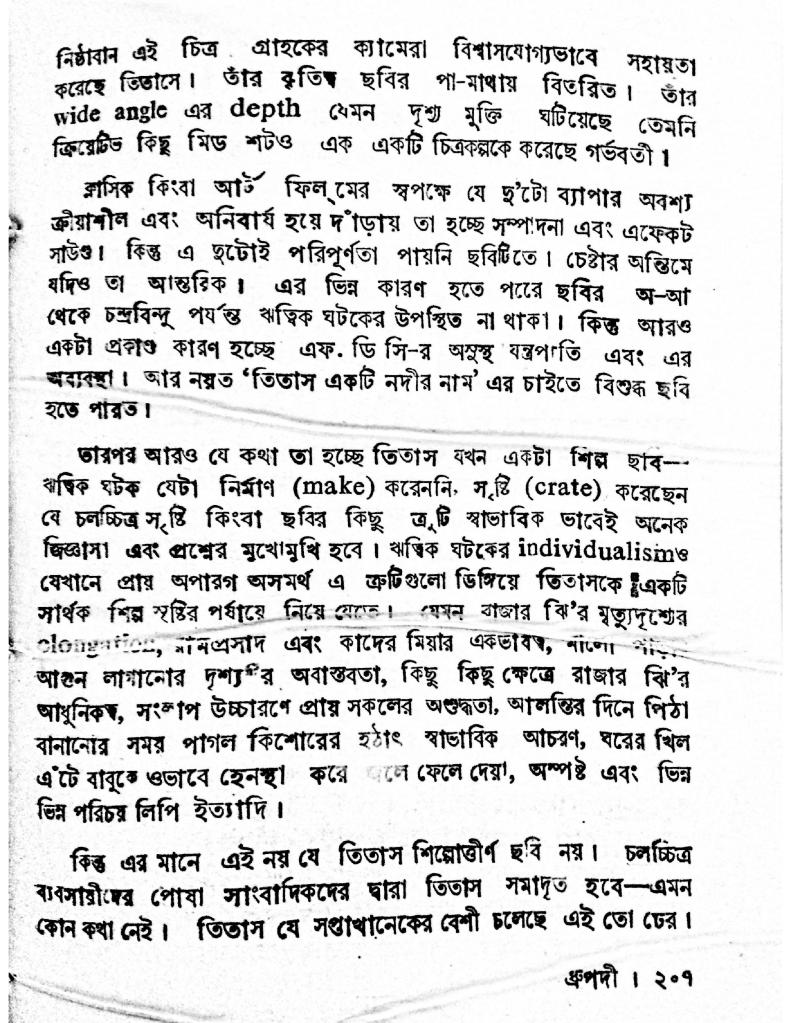 নিষ্ঠাবান এই চিত্র গ্রাহকের ক্যামেরা বিশ্বাসযোগ্যভাবে সহায়তা
করেছে তিতাসে। তাঁর কৃতিত্ব ছবির পা-মাথায় বিতরিত। তাঁর
wide angle এর depth যেমন দৃশ্য মুক্তি ঘটিয়েছে তেমনি
ক্রিয়েটিভ কিছু মিড শটও এক একটি চিত্রকল্পকে করেছে গর্ভবতী।
ক্লাসিক কিংবা আর্ট ফিল্মের স্বপক্ষে যে দু'টো ব্যাপার অবশ্য
ক্রীয়াশীল এবং অনিবার্য হয়ে দাঁড়ায় তা হচ্ছে সম্পাদনা এবং এফেকট
সাউণ্ড। কিন্তু এ দুটোই পরিপূর্ণতা পায়নি ছবিটিতে। চেষ্টার অন্তিমে
যদিও তা আন্তরিক। এর ভিন্ন কারণ হতে পরে ছবির অ-আ
থেকে চন্দ্রবিন্দু পর্যন্ত ঋত্বিক ঘটকের উপস্থিত না থাকা। কিন্তু আরও
একটা প্রকাণ্ড কারণ হচ্ছে এফ. ডি সি-র অসুস্থ যন্ত্রপাতি এবং এর
অব্যবস্থা। আর নয়ত 'তিতাস একটি নদীর নাম' এর চাইতে বিশুদ্ধ ছবি
হতে পারত।
তারপর আরও যে কথা তা হচ্ছে তিতাস যখন একটা শিল্প ছবি—
ঋত্বিক ঘটক যেটা নির্মাণ (make) করেননি, সৃষ্টি (crate) করেছেন
যে চলচ্চিত্র সৃষ্টি কিংবা ছবির কিছু ত্রুটি স্বাভাবিক ভাবেই অনেক
জিজ্ঞাসা এবং প্রশ্নের মুখোমুখি হবে। ঋত্বিক ঘটকের individualismও
যেখানে প্রায় অপারগ অসমর্থ এ ত্রুটিগুলো ডিঙ্গিয়ে তিতাসকে একটি
সার্থক শিল্প সৃষ্টির পর্যায়ে নিয়ে যেতে। যেমন রাজার ঝি'র মৃত্যুদৃশ্যের
elongation, রামপ্রসাদ এবং কাদের মিয়ার একভাবত্ব, মালো পাড়ায়
আগুন লাগানোর দৃশ্যটির অবাস্তবতা, কিছু কিছু ক্ষেত্রে রাজার ঝি'র
আধুনিকত্ব, সংলাপ উচ্চারণে প্রায় সকলের অশুদ্ধতা, আলন্তির দিনে পিঠা
বানানোর সময় পাগল কিশোরের হঠাৎ স্বাভাবিক আচরণ, ঘরের খিল
এঁটে বাবুকে ওভাবে হেনস্থা করে ফেলে দেয়া, অস্পষ্ট এবং ভিন্ন
ভিন্ন পরিচয় লিপি ইত্যাদি।
কিন্তু এর মানে এই নয় যে তিতাস শিল্পোত্তীর্ণ ছবি নয়। চলচ্চিত্র
ব্যবসায়ীদের পোষা সাংবাদিকদের দ্বারা তিতাস সমাদৃত হবে—এমন
কোন কথা নেই। তিতাস যে সপ্তাখানেকের বেশী চলেছে এই তো ঢের।
ধ্রুপদী। ২০৭